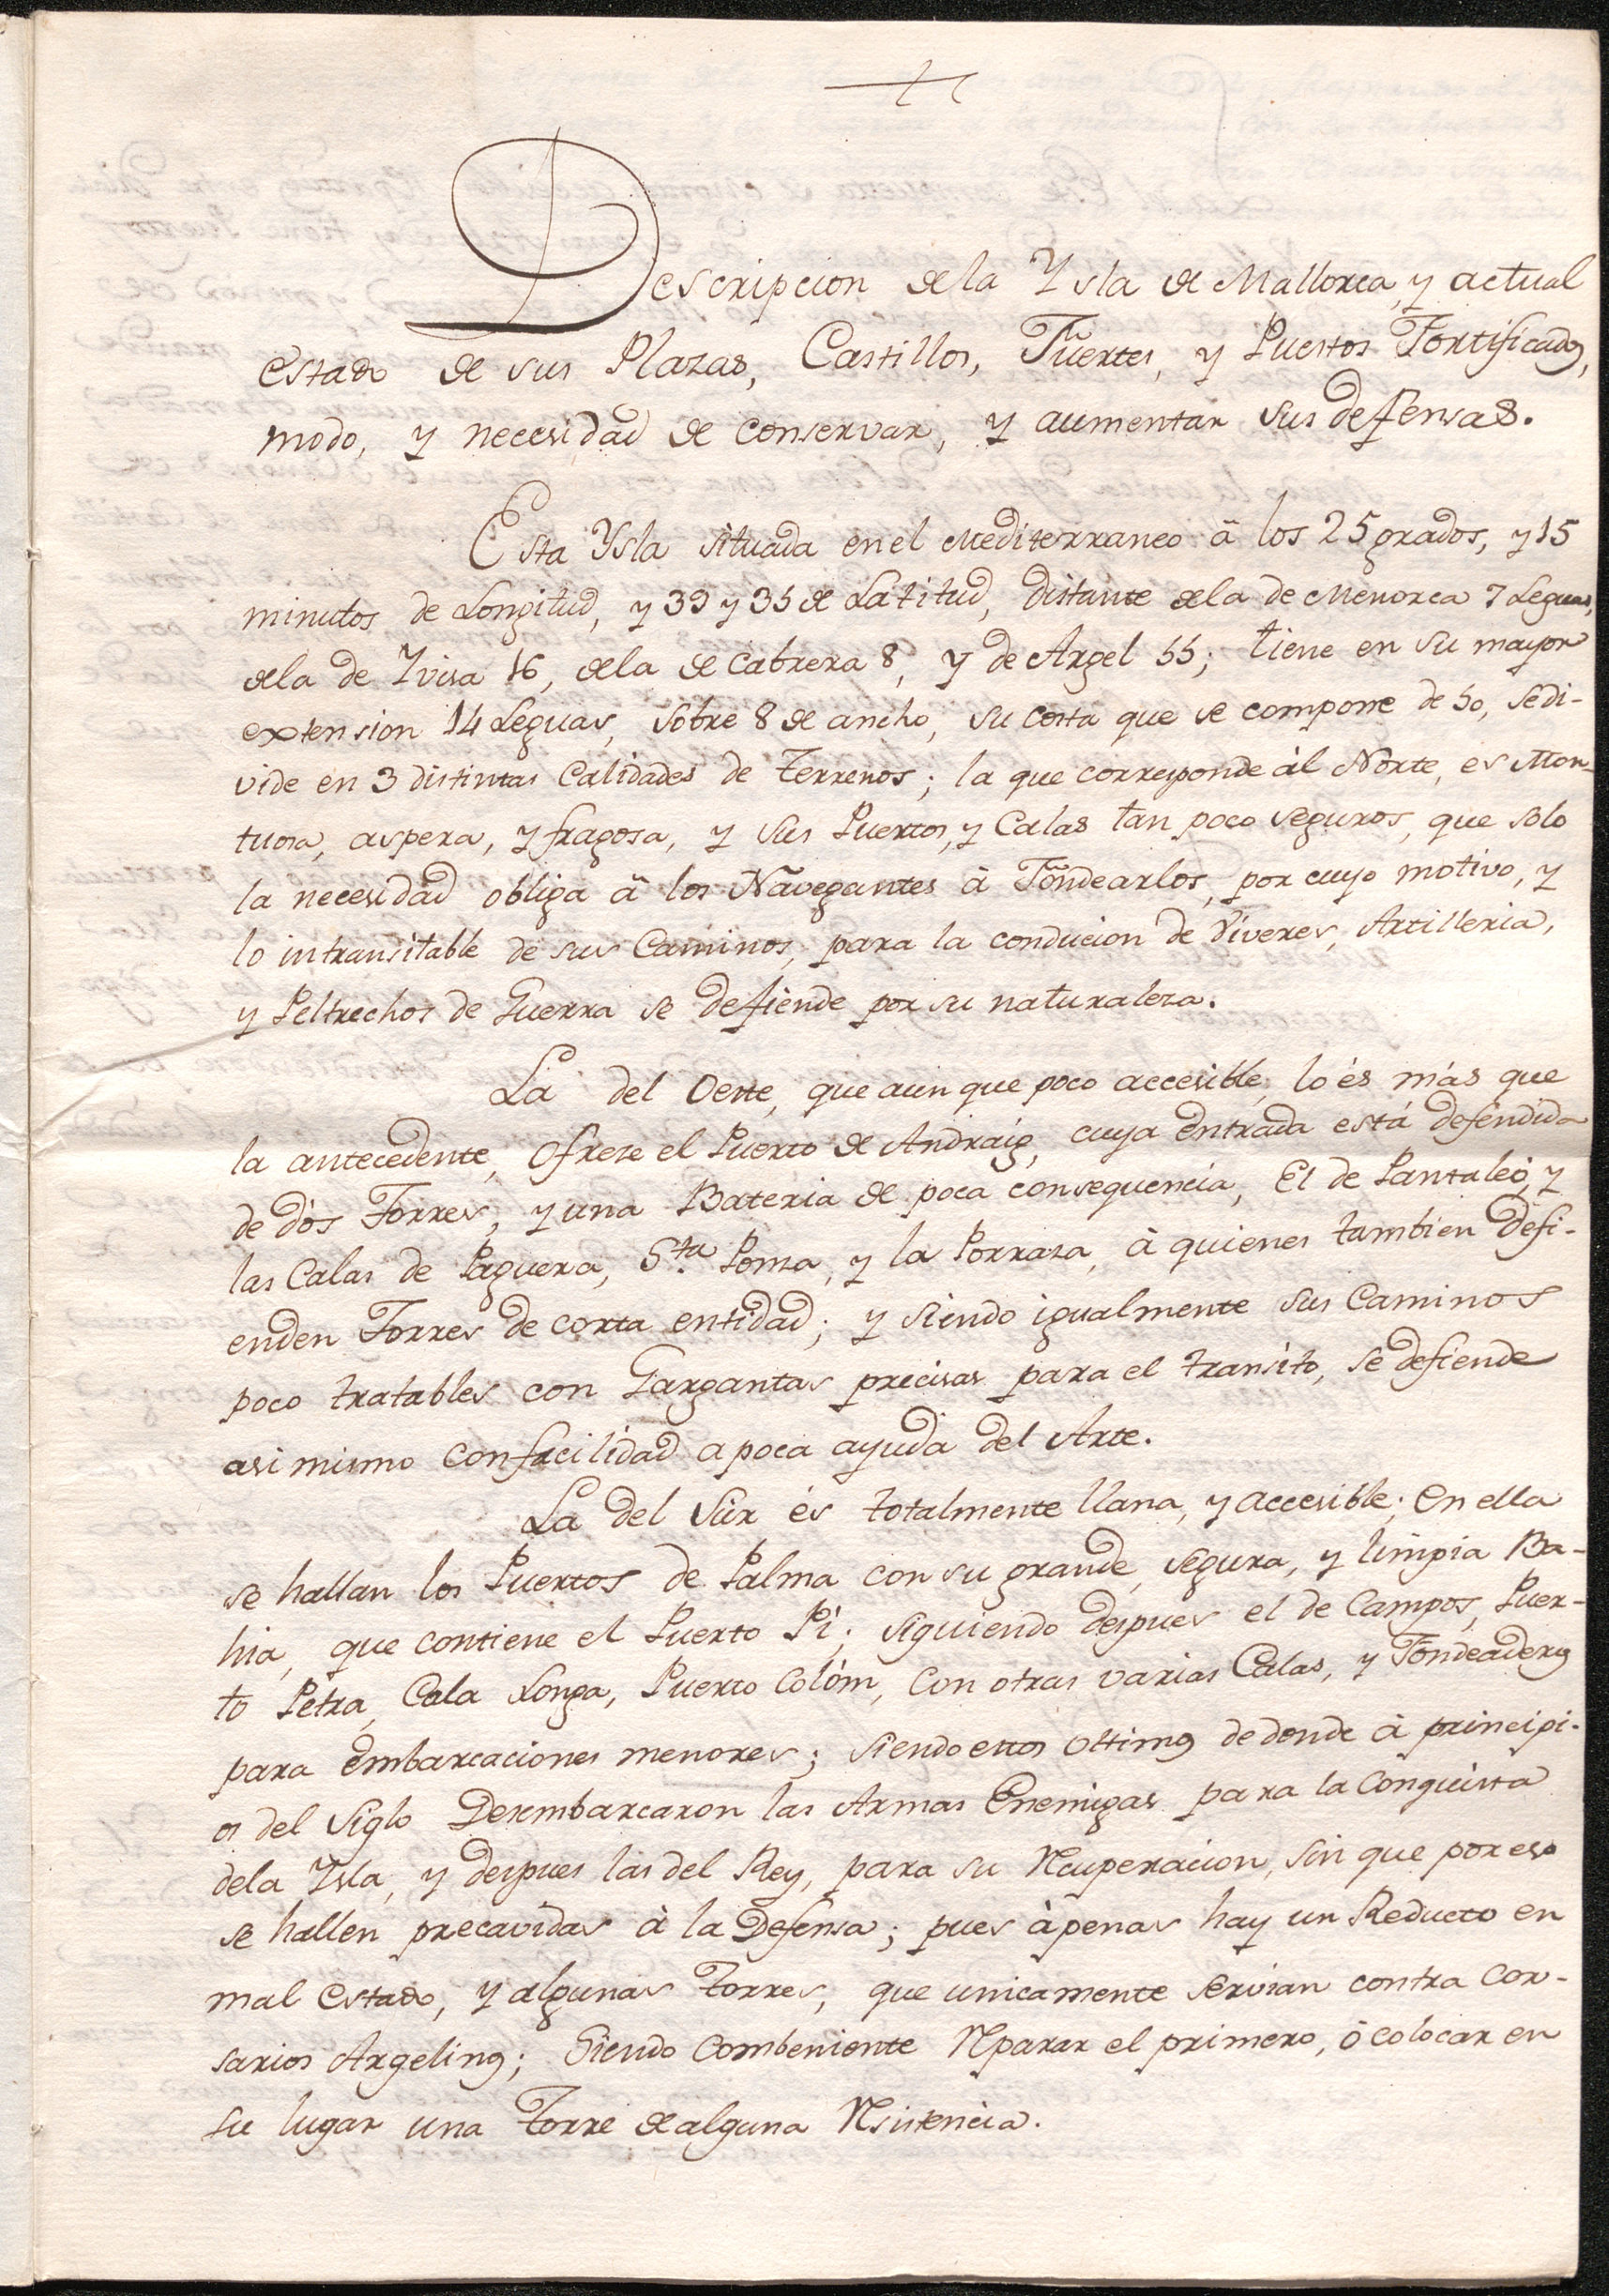 Descripcion de la Ysla de Mallorca, y actual
estado de sus Plazas, Castillos, Fuertes, y Puestos Fortificados,
modo, y necesidad de conservar, y aumentar sus defensas.
Esta Ysla situada en el Mediterraneo â los 25 grados, y 15
minutos de Longitud, y 39 y 35 de Latitud, distante dela de Menorca 7 Leguas,
dela de Ivisa 16, dela de Cabrera 8, y de Argel 55; tiene en su mayor
extension 14 Leguas, sobre 8 de ancho, su costa que se compone de 50, se di-
vide en 3 distintas Calidades de Terrenos; la que corresponde àl Norte, es Mon-
tuosa, aspera, y fragosa, y sus Puertos, y Calas tan poco seguros, que solo
la necesidad obliga â los Navegantes à Fondearlos, por cuyo motivo, y
lo intransitable de sus Caminos, para la conducion de Viveres, Artilleria,
y Peltrechos de Guerra se defiende por su naturaleza.
La del Oeste, que aunque poco accesible, lo és más que
la antecedente, ofreze el Puerto de Andraig, cuya entrada está defendida
de dós Torres, y una Bateria de poca consequencia, El de Pantaleó, y
las Calas de Paguera, S.ta Ponsa, y la Porrasa, à quienes tambien defi-
enden Torres de corta entidad; y siendo igualmente sus Caminos
poco tratables con Gargantas precisas para el transito, se defiende
asi mismo con facilidad a poca ayuda del Arte.
La del Sùr és totalmente llana, y accesible; en ella
se hallan los Puertos de Palma con su grande, segura, y limpia Ba-
hia, que contiene el Puerto Pí; siguiendo despues el de Campos, Puer-
to Petra, Cala Longa, Puerto Colóm, con otras varias Calas, y Fondeaderos
para embarcaciones menores; siendo estos ultimos de donde à principi-
os del Siglo Desembarcaron las Armas Enemigas para la Conquista
dela Ysla, y despues las del Rey, para su Recuperacion, sin que por eso
se hallen precavidas à la Defensa; pues àpenas hay un Reducto en
mal estado, y algunas Torres, que unicamente servian contra Cor-
sarios Argelinos; Siendo Combeniente Reparar el primero, ó colocar en
su lugar una Torre de alguna Resistencia.